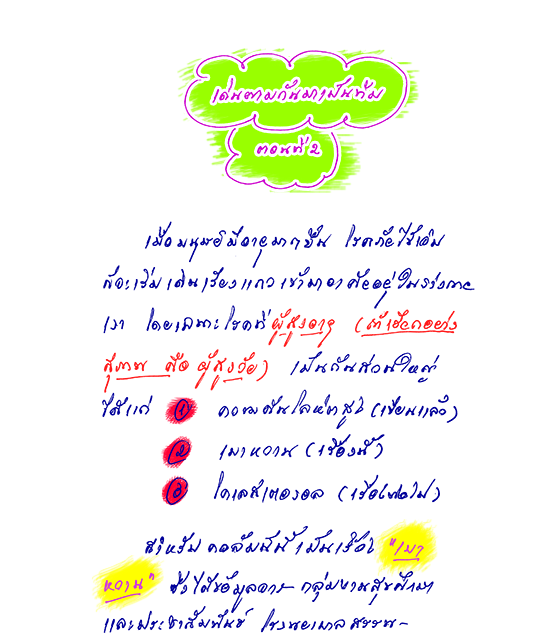 เดินตามกันมาเป็นทีม
ตอนที่ 2
เมื่อมนุษย์มีอายุมากขึ้น โรคภัยไข้เจ็บ
ก็จะเริ่มเดินเรียงแถวเข้ามาอาศัยอยู่ในร่างกาย
เรา โดยเฉพาะโรคที่ผู้สูงอายุ (ถ้าเรียกอย่าง
สุภาพ คือ ผู้สูงวัย) เป็นกันส่วนใหญ่
ได้แก่ 1 ความดันโลหิตสูง (เขียนแล้ว)
2 เบาหวาน (เรื่องนี้)
3 โคเลสเตอรอล (เรื่องต่อไป)
สำหรับ คอลัมน์นี้ เป็นเรื่อง "เบา
หวาน" ซึ่งได้ข้อมูลจาก กลุ่มงานสุขศึกษา
และประชาสัมพันธ์ โรงพยาบาลสรรพ-